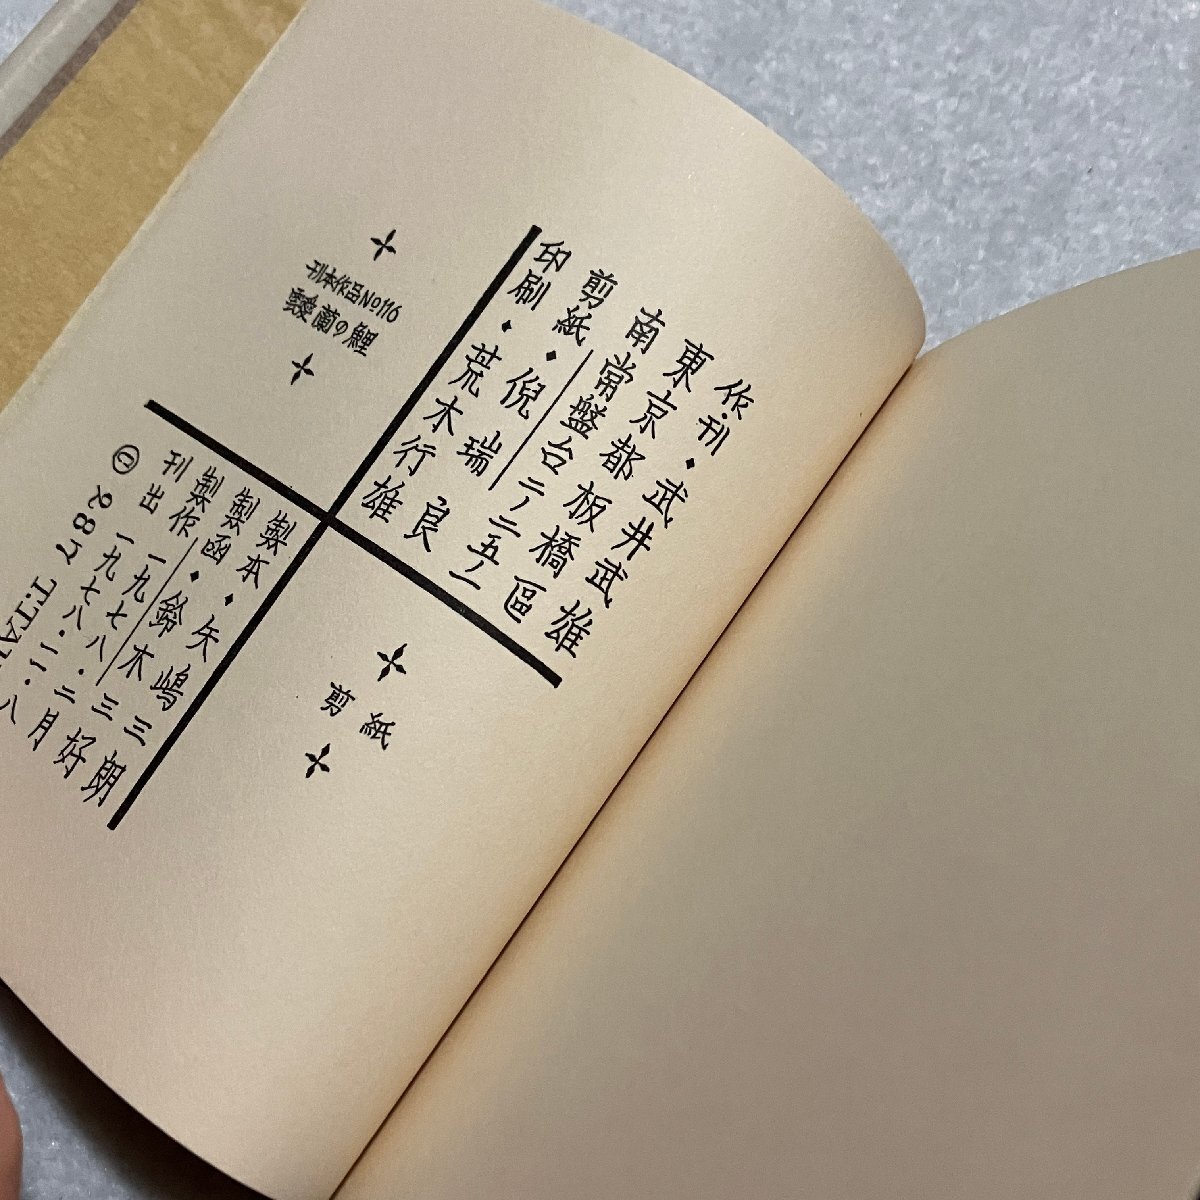 作・刊・武井武雄
東京都板橋區
南常盤台二ノ二五ノ一
剪紙・倪瑞良
印刷・荒木行雄
刊本作品No116
靉蘭の鯉
剪紙
製本・矢嶋三朗
製函・鈴木三好
製作 一九七八・二月
刊出 一九七八・一一・八
© 287 T.TA